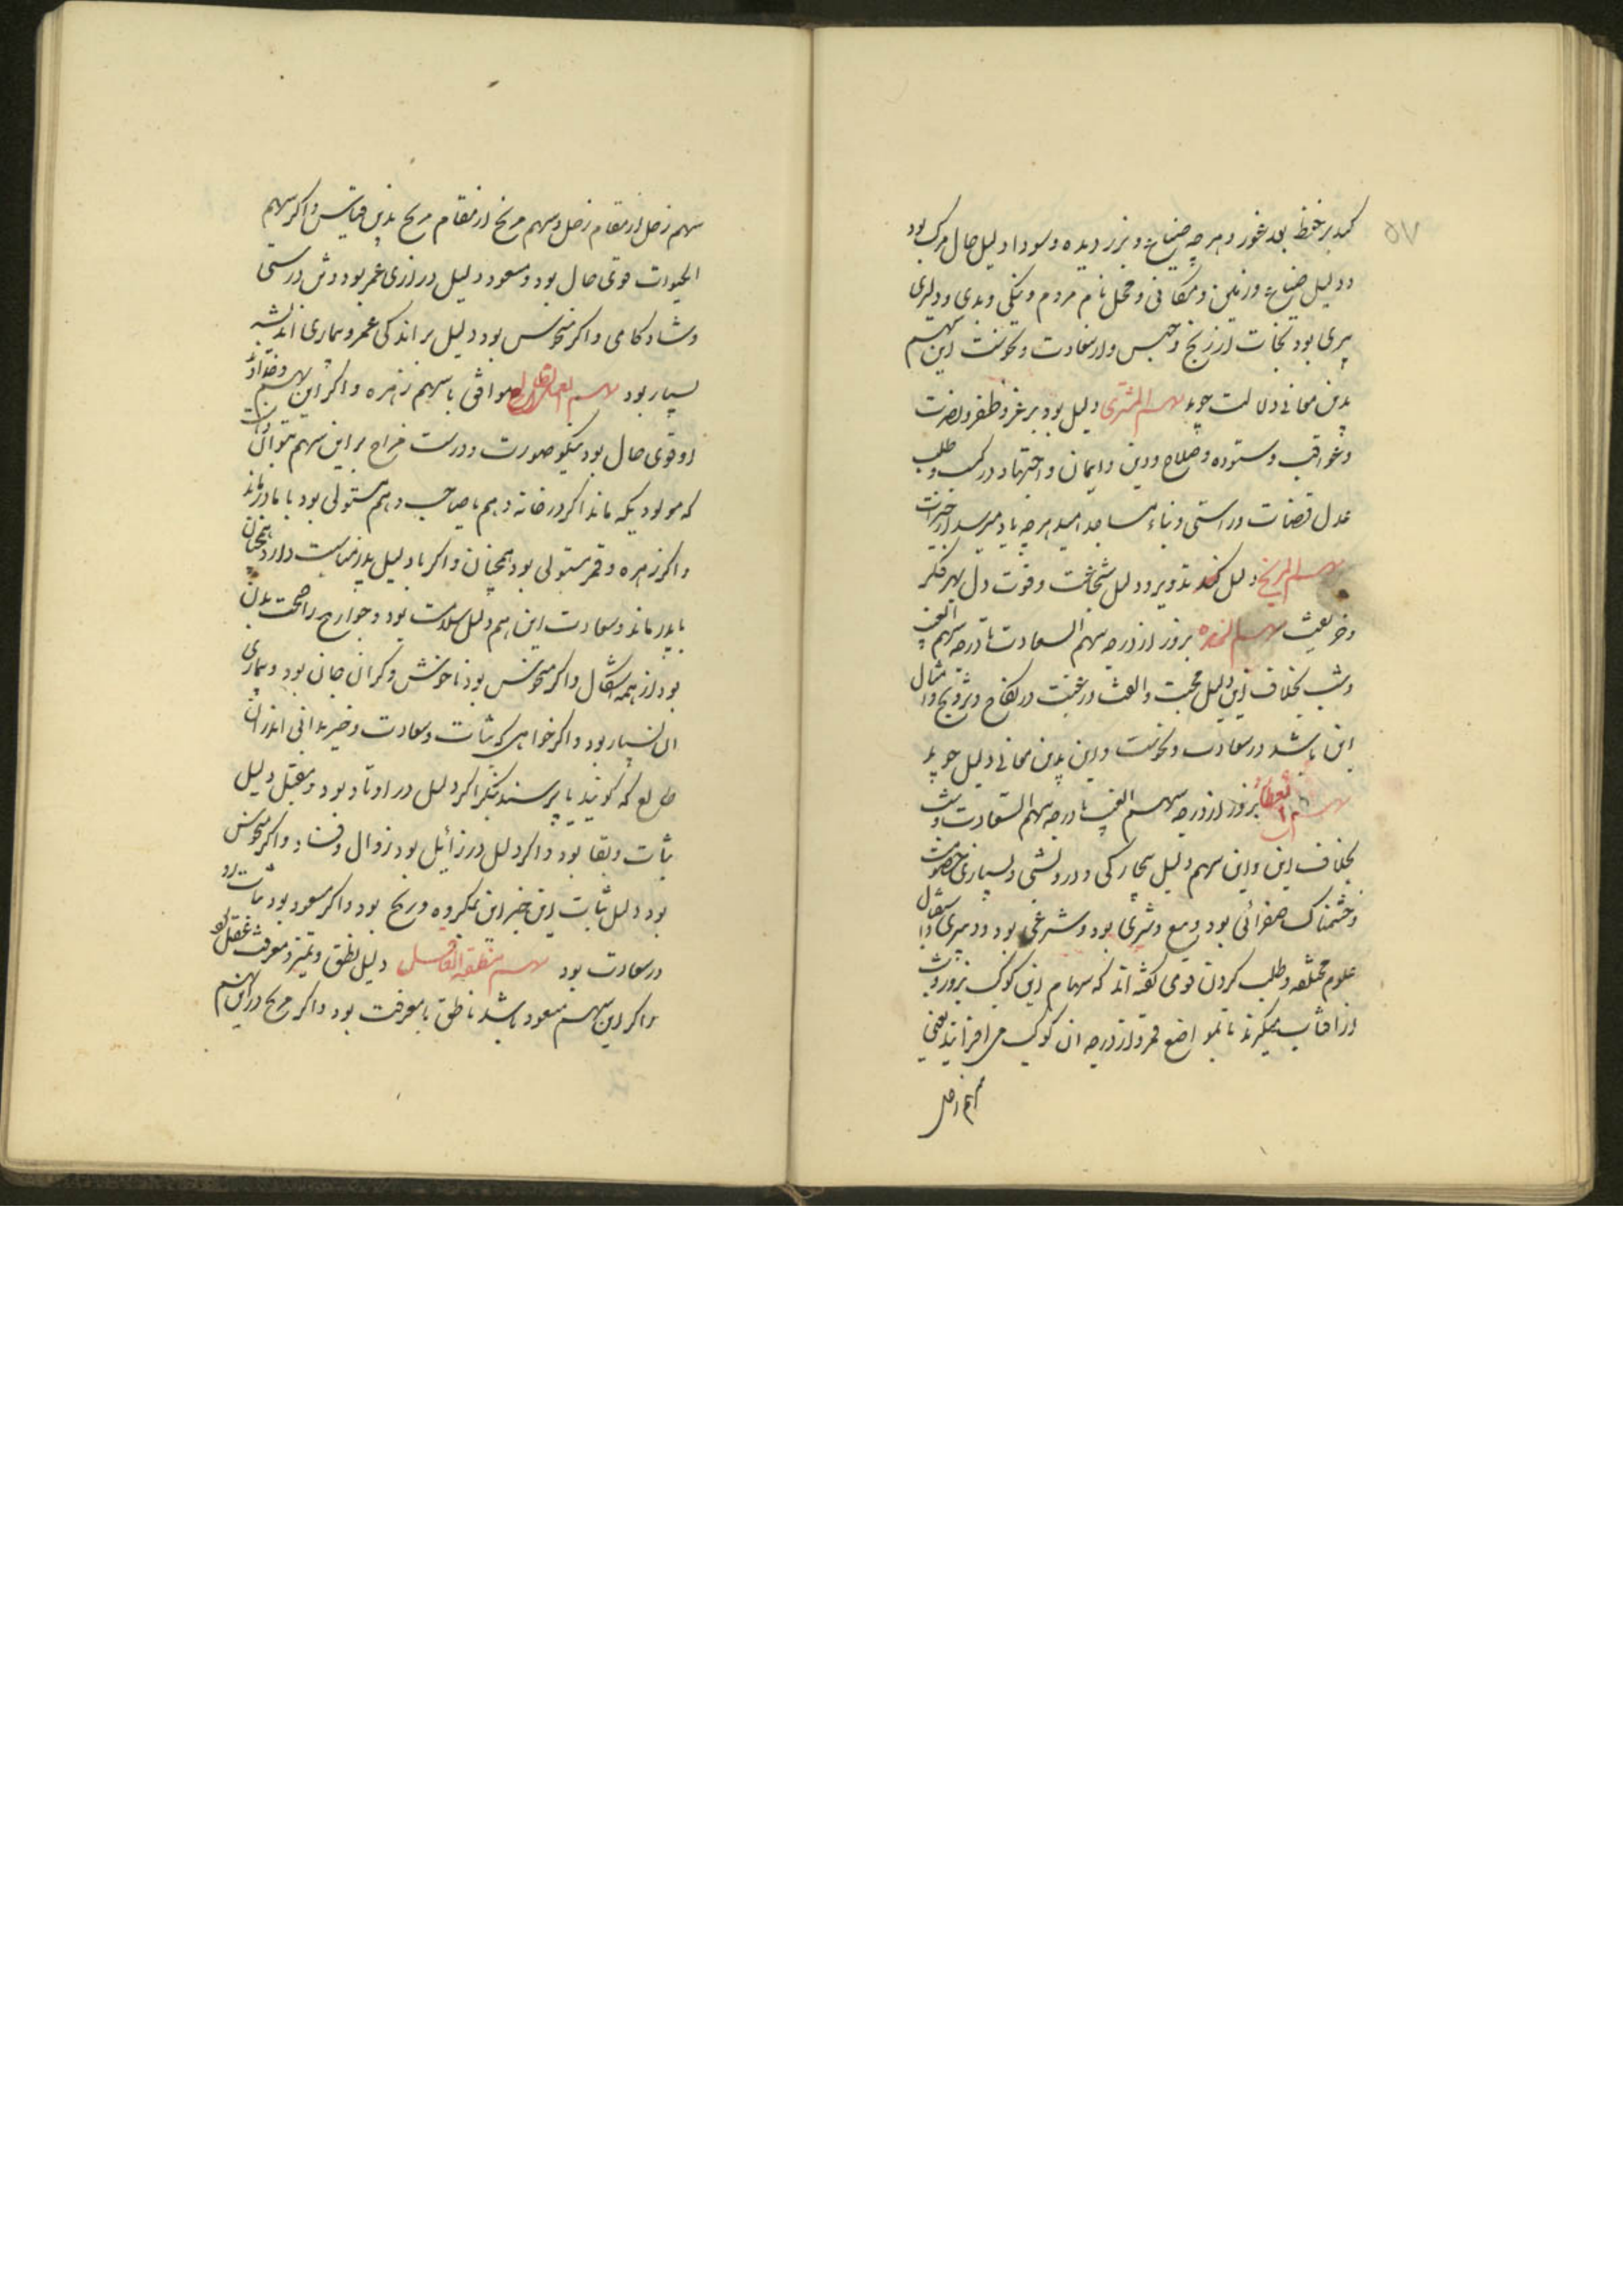 ۵۷
کند بر حفظ بعد غور و هرچه ضیاع و بزر دیده و سودا دلیل حال مرک بود
و دلیل ضیاع و زمین و مکانی و محل نام مردم و نیکی و بدی و دلیری
پیری بود نجات از رنج و حبس و از سعادت و نحوست این سهم
بدین معانی دلالت جوید سهم المشتری دلیل بود بر عز و ظفر و نصرت
و عواقب و ستوده و صلاح و دین و ایمان و اجتهاد در کسب و طلب
عدل قضات و راستی و بناء مساجد امید هرچه بادمیرسد از خیرات
سهم المریخ دلیل کند تدویر و دلیل شجاعت و قوت دل بهر فکر
و خدیعت سهم الزهره بروز از درجه سهم السعادت تا درجه سهم الغیب
و شب بخلاف این دلیل محبت و الفت و رغبت در نکاح و تزویج و امثال
این باشد در سعادت و نحوست و این بدین معانی دلیل جوید
سهم عطارد بروز از درجه سهم الغیب تا درجه سهم السعادت و شب
بخلاف این و این سهم دلیل بیچارکی و درویشی و بسیاری خصومت
و خشمناک صفرائی بود و بیع و شری بود و شرعی بود و دبیری و اشتغال
علوم مختلفه و طلب کردن قومی کفته اند که سهام این کوکب بروز و شب
از آفتاب میکیرند تا بمواضع قمر و از درجه ان کوکب می افزایند یعنی
سهم زحل
سهم زحل از مقام زحل و سهم مریخ از مقام مریخ بدین قیاس و اکر سهم
الحیوت قوی حال بود و مسعود دلیل درازی عمر بود و تن درستی
و شادکامی و اکر منحوس بود دلیل بر اندکی عمر و بیماری اندیشه
بسیار بود سهم موافق با سهم زهره و اکر این سهم و خداوند
او قوی حال بود نیکو صورت و درست مزاج بر این سهم بتوان دانست
که مولود بکه ماند اکر در خانه دهم یا صاحب دهم مستولی بود با مادر ماند
و اکر زهره و قمر مستولی بود همچنان و اکر با دلیل پدر مناسبت دارد همچنان
با پدر ماند و سعادت این سهم دلیل سلامت بود و جوارح را صحت بدن
بود از همه اشکال و اکر منحوس بود ناخوش و کران جان بود و بیماری
ان بسیار بود و اکر خواهی که ثبات و سعادت و خیر بدانی اندر ان
طالع که کویند یا پرسند بنکر اکر دلیل در اوتاد بود و مقبل دلیل
ثبات و بقا بود و اکر دلیل در زائل بود زوال و فساد و اکر منحوس
بود دلیل ثبات این خبر این مکروه و رنج بود و اکر مسعود بود ثبات او
در سعادت بود سهم منطقه العاقل دلیل نطق و تمیز و معرفت عقل بود
و اکر این سهم مسعود باشد ناطق با معرفت بود و اکر مریخ در این سهم